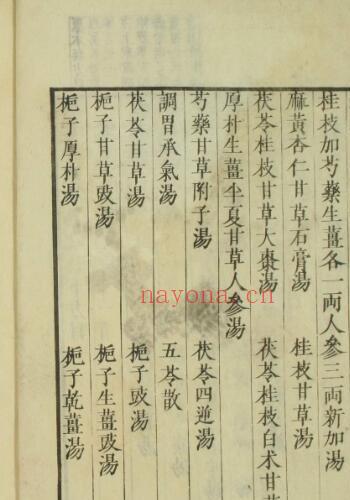 桂枝加芍藥生薑各一兩人參三兩新加湯
麻黃杏仁甘草石膏湯 桂枝甘草湯
茯苓桂枝甘草大棗湯 茯苓桂枝白术甘草
厚朴生薑半夏甘草人參湯
芍藥甘草附子湯 茯苓四逆湯
調胃承氣湯 五苓散
茯苓甘草湯 梔子豉湯
梔子甘草豉湯 梔子生薑豉湯
梔子厚朴湯 梔子乾薑湯
nayona.cn